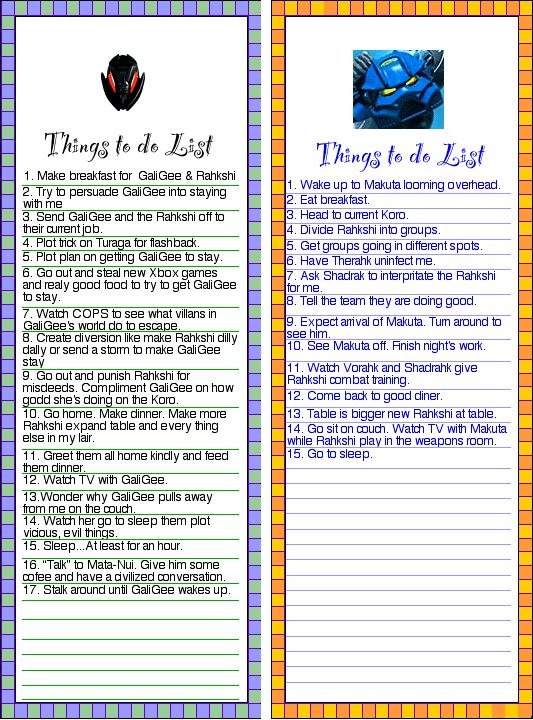 Things to do List
1. Make breakfast for GaliGee & Rahkshi
2. Try to persuade GaliGee into staying
with me
3. Send GaliGee and the Rahkshi off to
their current job.
4. Plot trick on Turaga for flashback.
5. Plot plan on getting GaliGee to stay.
6. Go out and steal new Xbox games
and realy good food to try to get GaliGee
to stay.
7. Watch COPS to see what villans in
GaliGee's world do to escape.
8. Create diversion like make Rahkshi dilly
dally or send a storm to make GaliGee
stay
9. Go out and punish Rahkshi for
misdeeds. Compliment GaliGee on how
godd she's doing on the Koro.
10. Go home. Make dinner. Make more
Rahkshi expand table and every thing
else in my lair.
11. Greet them all home kindly and feed
them dinner.
12. Watch TV with GaliGee.
13.Wonder why GaliGee pulls away
from me on the couch.
14. Watch her go to sleep them plot
vicious, evil things.
15. Sleep...At least for an hour.
16. "Talk" to Mata-Nui. Give him some
cofee and have a civilized conversation.
17. Stalk around until GaliGee wakes up.
Things to do List
1. Wake up to Makuta looming overhead.
2. Eat breakfast.
3. Head to current Koro.
4. Divide Rahkshi into groups.
5. Get groups going in different spots.
6. Have Therahk uninfect me.
7. Ask Shadrak to interpritate the Rahkshi
for me.
8. Tell the team they are doing good.
9. Expect arrival of Makuta. Turn around to
see him.
10. See Makuta off. Finish night's work.
11. Watch Vorahk and Shadrahk give
Rahkshi combat training.
12. Come back to good diner.
13. Table is bigger new Rahkshi at table.
14. Go sit on couch. Watch TV with Makuta
while Rahkshi play in the weapons room.
15. Go to sleep.